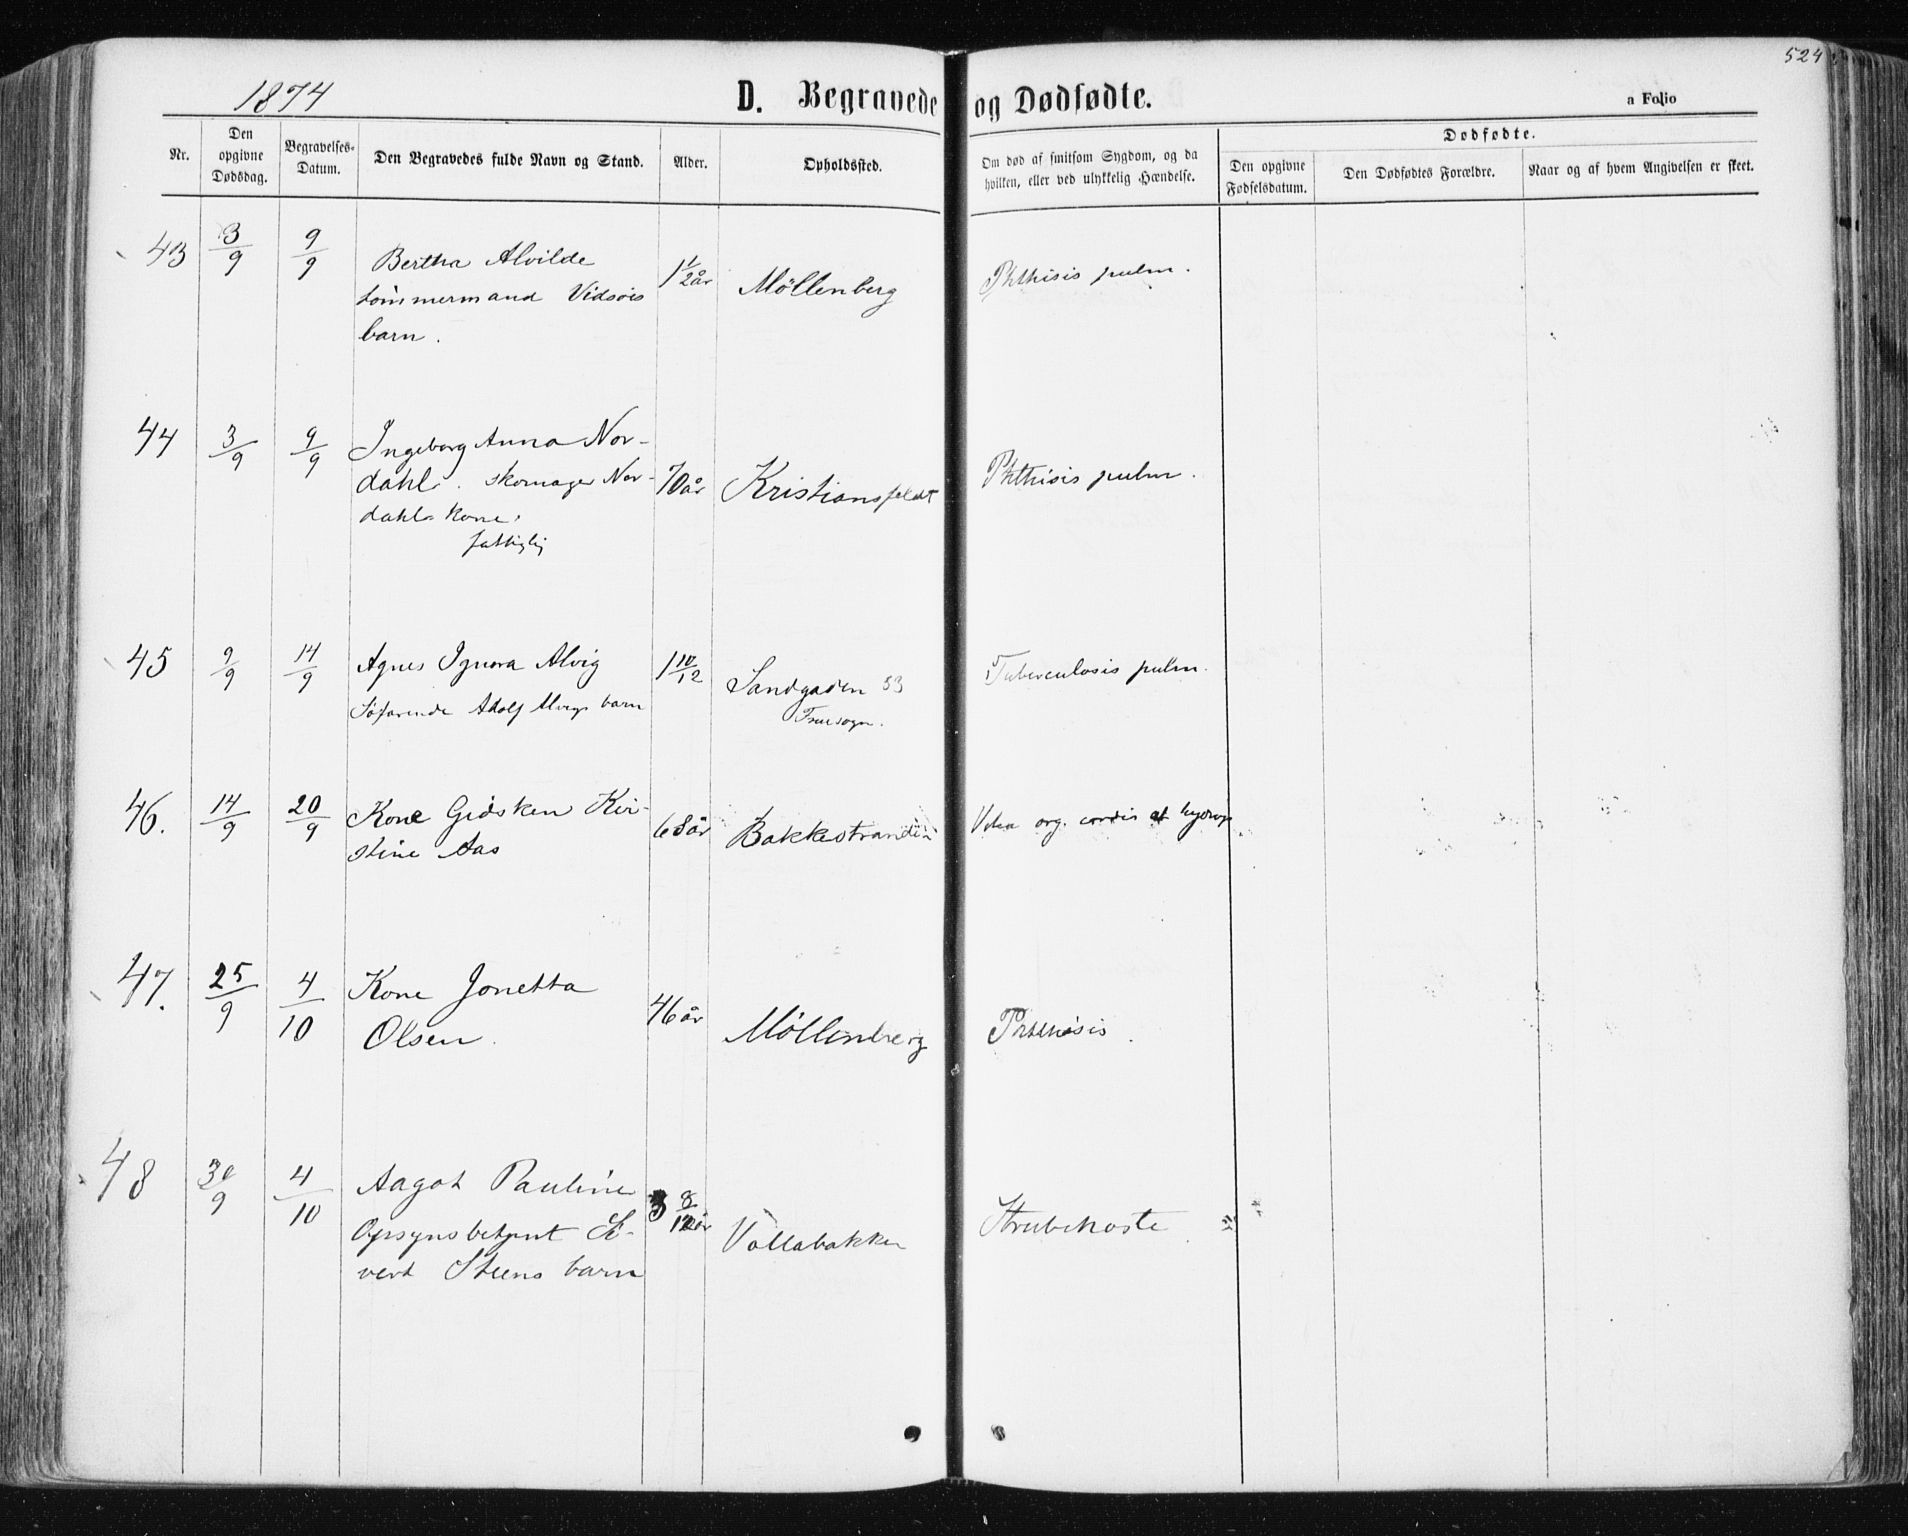 524
1874
D. Begravede og Dødfødte.
a Folio
Nr.
Den opgivne Dødsdag.
Begravelses-Datum.
Den Begravedes fulde Navn og Stand.
Alder.
Opholdssted.
Om død af smitsom Sygdom, og da hvilken, eller ved ulykkelig Hændelse.
Dødfødte.
Den opgivne Fødselsdatum.
Den Dødfødtes Forældre.
Naar og af hvem Angivelsen er skeet.
43 3/9 9/9 Bertha Alvilde 1 1/2 år Möllenberg Phthisis pulm.
tömmermand Vidsöis
barn.
44 3/9 9/9 Ingeborg Anna Nor-
dahl. skomager Nor- 70 år Kristiansfeldt Phthisis pulm.
dahls kone.
fattiglig
45 9/9 14/9 Agnes Ignora Alvig 1 10/12 Sandgaden 53 Tuberculosis pulm.
Söfarende Adolf Alvigs barn Fruesogn.
46. 14/9 20/9 Kone Gidsken Kir- 68 år Bakkestranden org. cordis et hydrops
stine Aas
47. 25/9 4/10 Kone Jonetta 46 år Möllenberg Phthisis.
Olsen.
48 30/9 4/10 Aagot Pauline 3 8/12 år Vollabakken Strubehoste
Opsynsbetjent Si-
vert Steens barn